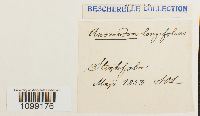 BESCHERELLE COLLECTION
Anomodon longifolius
Stockholm
Maji 1853
1099176